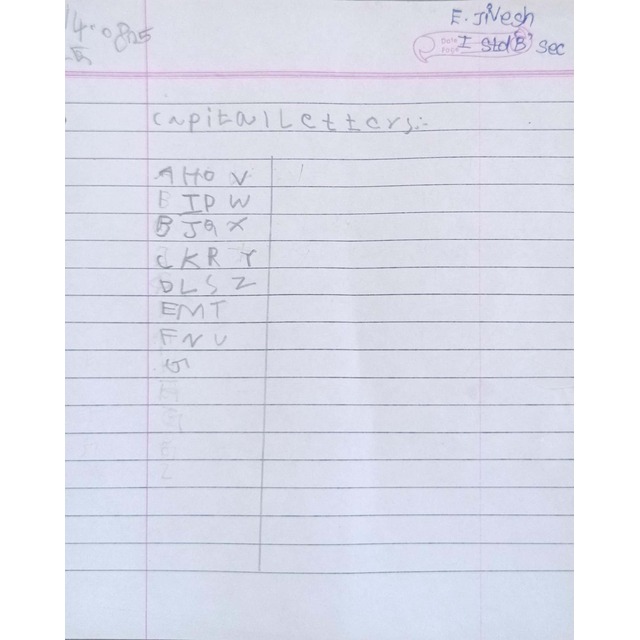 14.08.25
E. Jivesh
Date
Page
I Std 'B' Sec
capital Letters:-
A H O V
B I P W
B J Q X
C K R Y
D L S Z
E M T
F N U
G